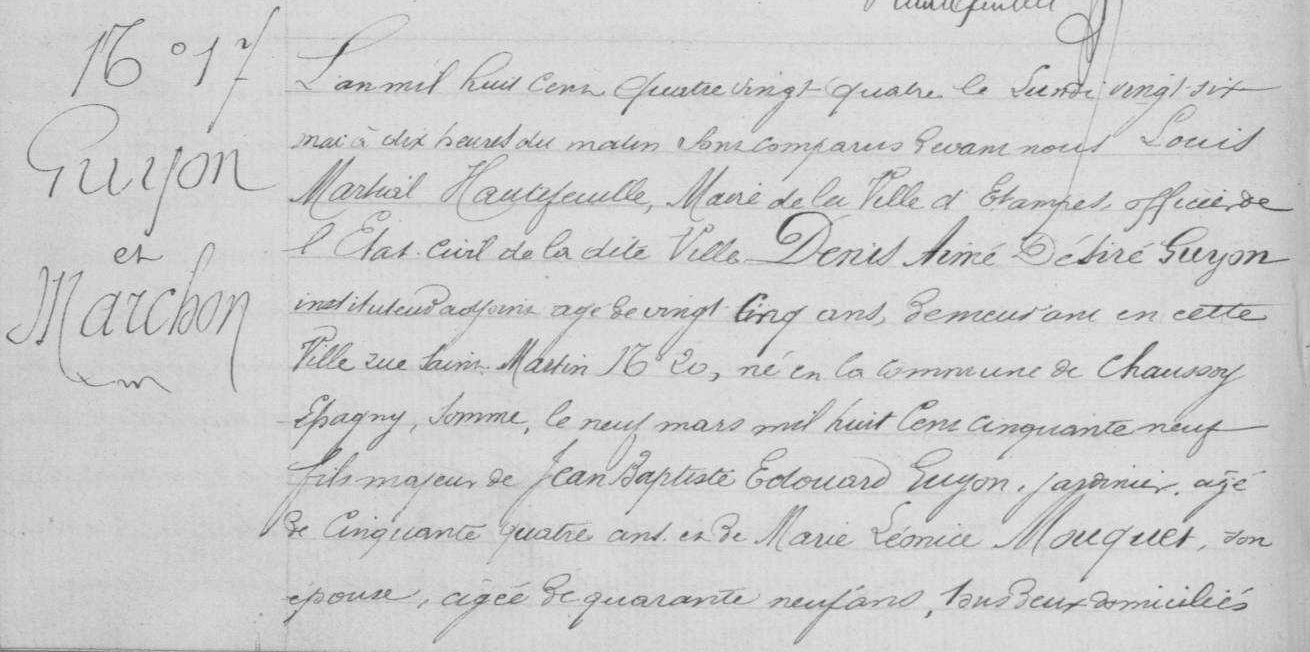 Hautefeuille
N° 17
Guyon
et
Marchon
L'an mil huit cent quatre vingt quatre le Lundi vingt-six
mai à dix heures du matin sont comparus devant nous Louis
Martial Hautefeuille, Maire de la Ville d'Etampes, officier de
l'Etat civil de la dite Ville Denis Aimé Désiré Guyon
instituteur adjoint agé de vingt cinq ans, demeurant en cette
Ville rue Saint Martin N° 20, né en la commune de Chaussoy
Epagny, Somme, le neuf mars mil huit cent cinquante neuf
fils majeur de Jean Baptiste Edouard Guyon, jardinier, agé
de cinquante quatre ans et de Marie Léonice Mouquet, son
épouse, agée de quarante neuf ans, tous deux domiciliés